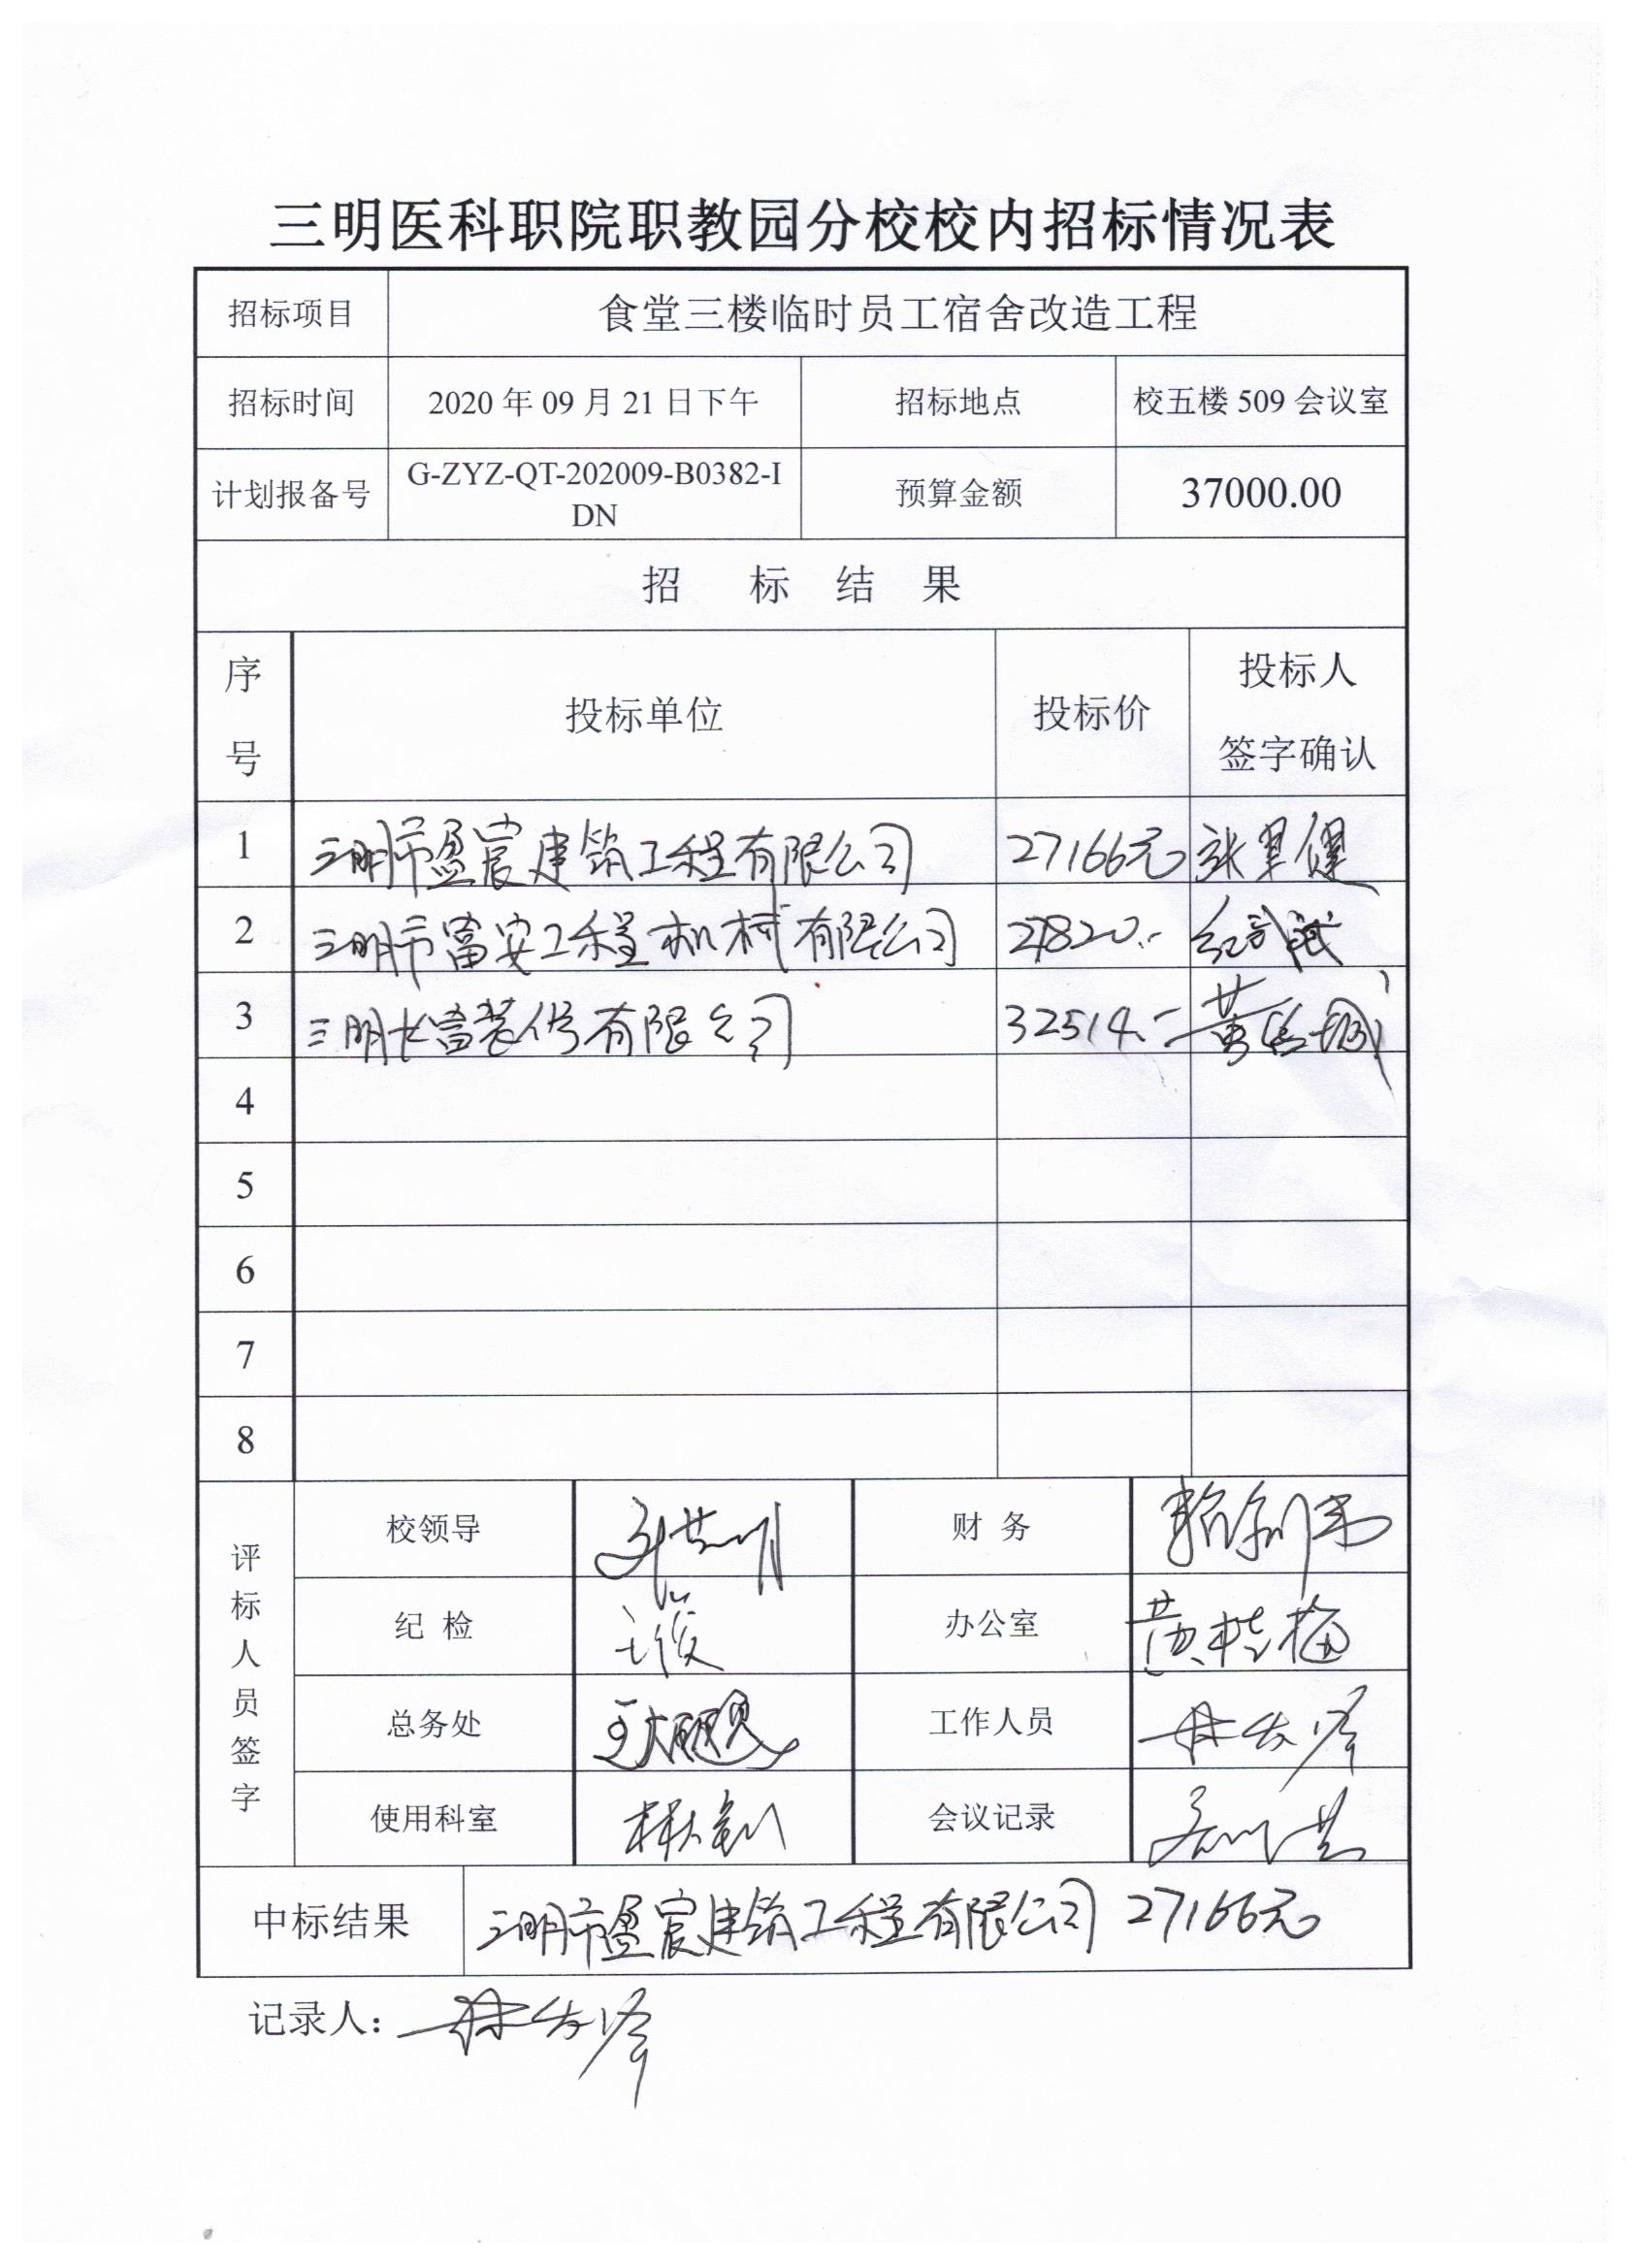 三明医科职院职教园分校校内招标情况表
招标项目 食堂三楼临时员工宿舍改造工程
招标时间 2020 年 09 月 21 日下午 招标地点 校五楼 509 会议室
计划报备号 G-ZYZ-QT-202009-B0382-I
DN
预算金额 37000.00
招 标 结 果
序
号
投标单位 投标价
投标人
签字确认
1 三明市盈宸建筑工程有限公司 27166元
2 三明市富安工程机械有限公司
3 三明 装饰有限公司 32514.-
4
5
6
7
8
评
标
人
员
签
字
校领导 财 务
纪 检 办公室 黄桂梅
总务处 工作人员
使用科室 会议记录
中标结果 三明市盈宸建筑工程有限公司 27166元
记录人: